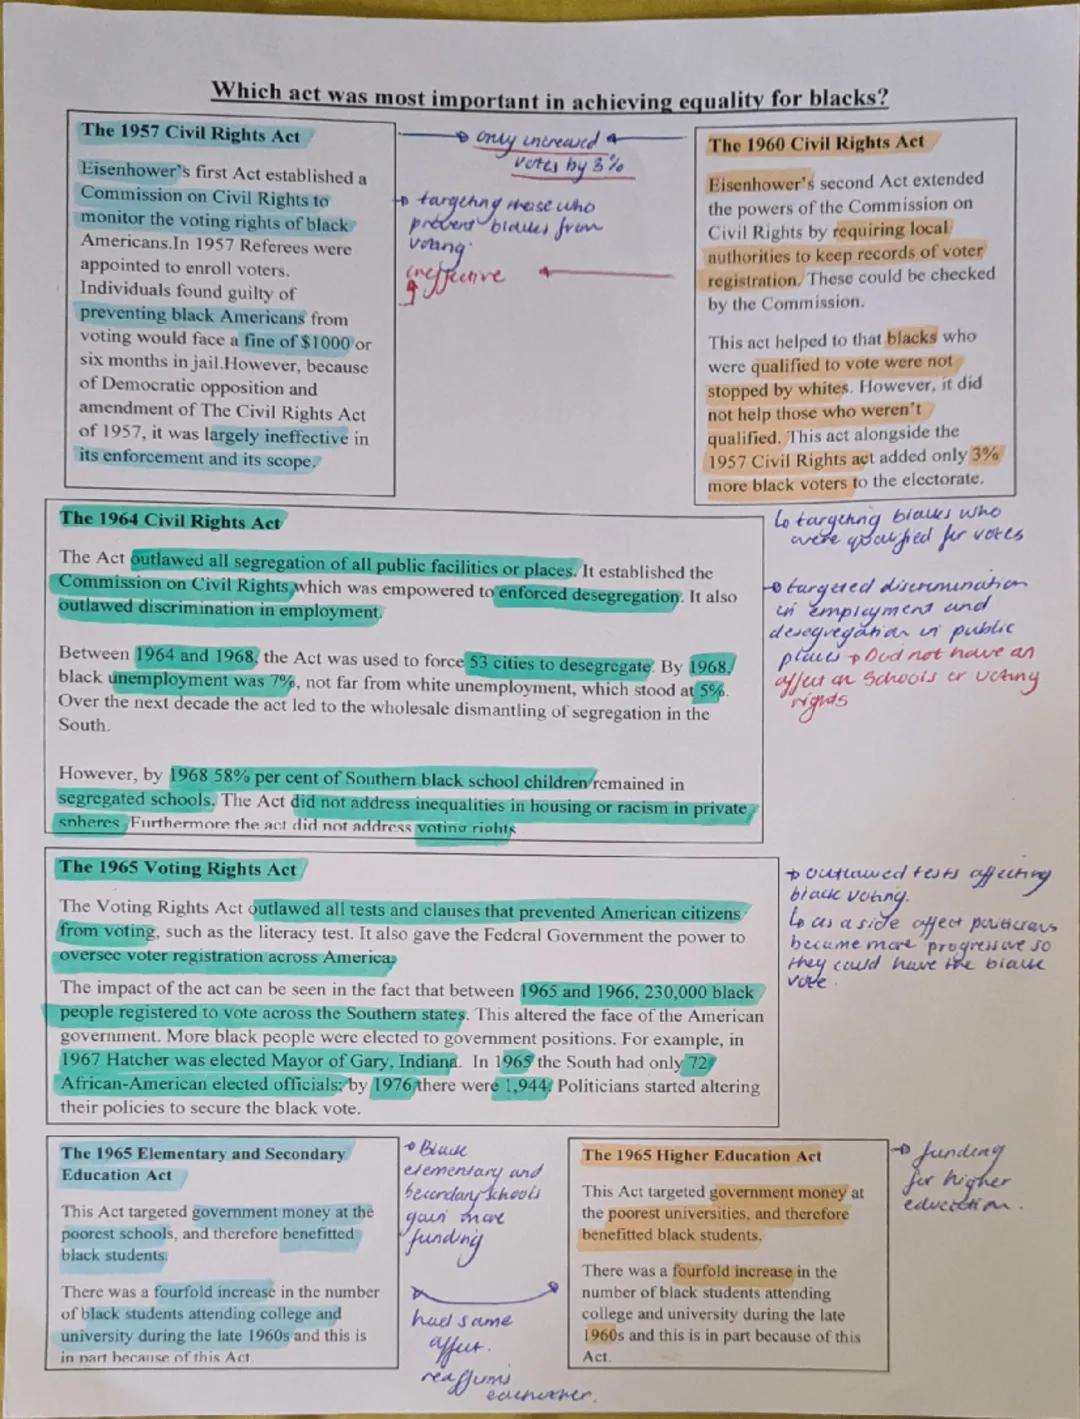 Which act was most important in achieving equality for blacks?
The 1957 Civil Rights Act
Eisenhower's first Act established a
Commission on Civil Rights to
monitor the voting rights of black
Americans.In 1957 Referees were
appointed to enroll voters.
Individuals found guilty of
preventing black Americans from
voting would face a fine of $1000 or
six months in jail.However, because
of Democratic opposition and
amendment of The Civil Rights Act
of 1957, it was largely ineffective in
its enforcement and its scope.
only increased
votes by 3%
targeting those who
prevent blacks from
voting.
ineffective
The 1960 Civil Rights Act
Eisenhower's second Act extended
the powers of the Commission on
Civil Rights by requiring local
authorities to keep records of voter
registration. These could be checked
by the Commission.
This act helped to that blacks who
were qualified to vote were not
stopped by whites. However, it did
not help those who weren't
qualified. This act alongside the
1957 Civil Rights act added only 3%
more black voters to the electorate.
targeting blacks who
were qualified for votes
The 1964 Civil Rights Act
The Act outlawed all segregation of all public facilities or places. It established the
Commission on Civil Rights which was empowered to enforced desegregation. It also
outlawed discrimination in employment.
Between 1964 and 1968, the Act was used to force 53 cities to desegregate. By 1968,
black unemployment was 7%, not far from white unemployment, which stood at 5%.
Over the next decade the act led to the wholesale dismantling of segregation in the
South.
However, by 1968 58% per cent of Southern black school children remained in
segregated schools. The Act did not address inequalities in housing or racism in private
spheres. Furthermore the act did not address voting rights
targeted discrimination
in employment and
desegregation in public
places Did not have an
affect on schools or voting
rights
The 1965 Voting Rights Act
The Voting Rights Act outlawed all tests and clauses that prevented American citizens
from voting, such as the literacy test. It also gave the Federal Government the power to
oversee voter registration across America.
The impact of the act can be seen in the fact that between 1965 and 1966, 230,000 black
people registered to vote across the Southern states. This altered the face of the American
government. More black people were elected to government positions. For example, in
1967 Hatcher was elected Mayor of Gary, Indiana. In 1965 the South had only 72
African-American elected officials; by 1976 there were 1,944. Politicians started altering
their policies to secure the black vote.
outlawed tests affecting
black voting.
as a side affect politicians
became more progressive so
they could have the black
vote.
The 1965 Elementary and Secondary
Education Act
This Act targeted government money at the
poorest schools, and therefore benefitted
black students.
There was a fourfold increase in the number
of black students attending college and
university during the late 1960s and this is
in part because of this Act.
Black
elementary and
secondary schools
gain more
funding
had same
affect.
reaffirms
eachother.
The 1965 Higher Education Act
This Act targeted government money at
the poorest universities, and therefore
benefitted black students.
There was a fourfold increase in the
number of black students attending
college and university during the late
1960s and this is in part because of this
Act.
funding
for higher
education.